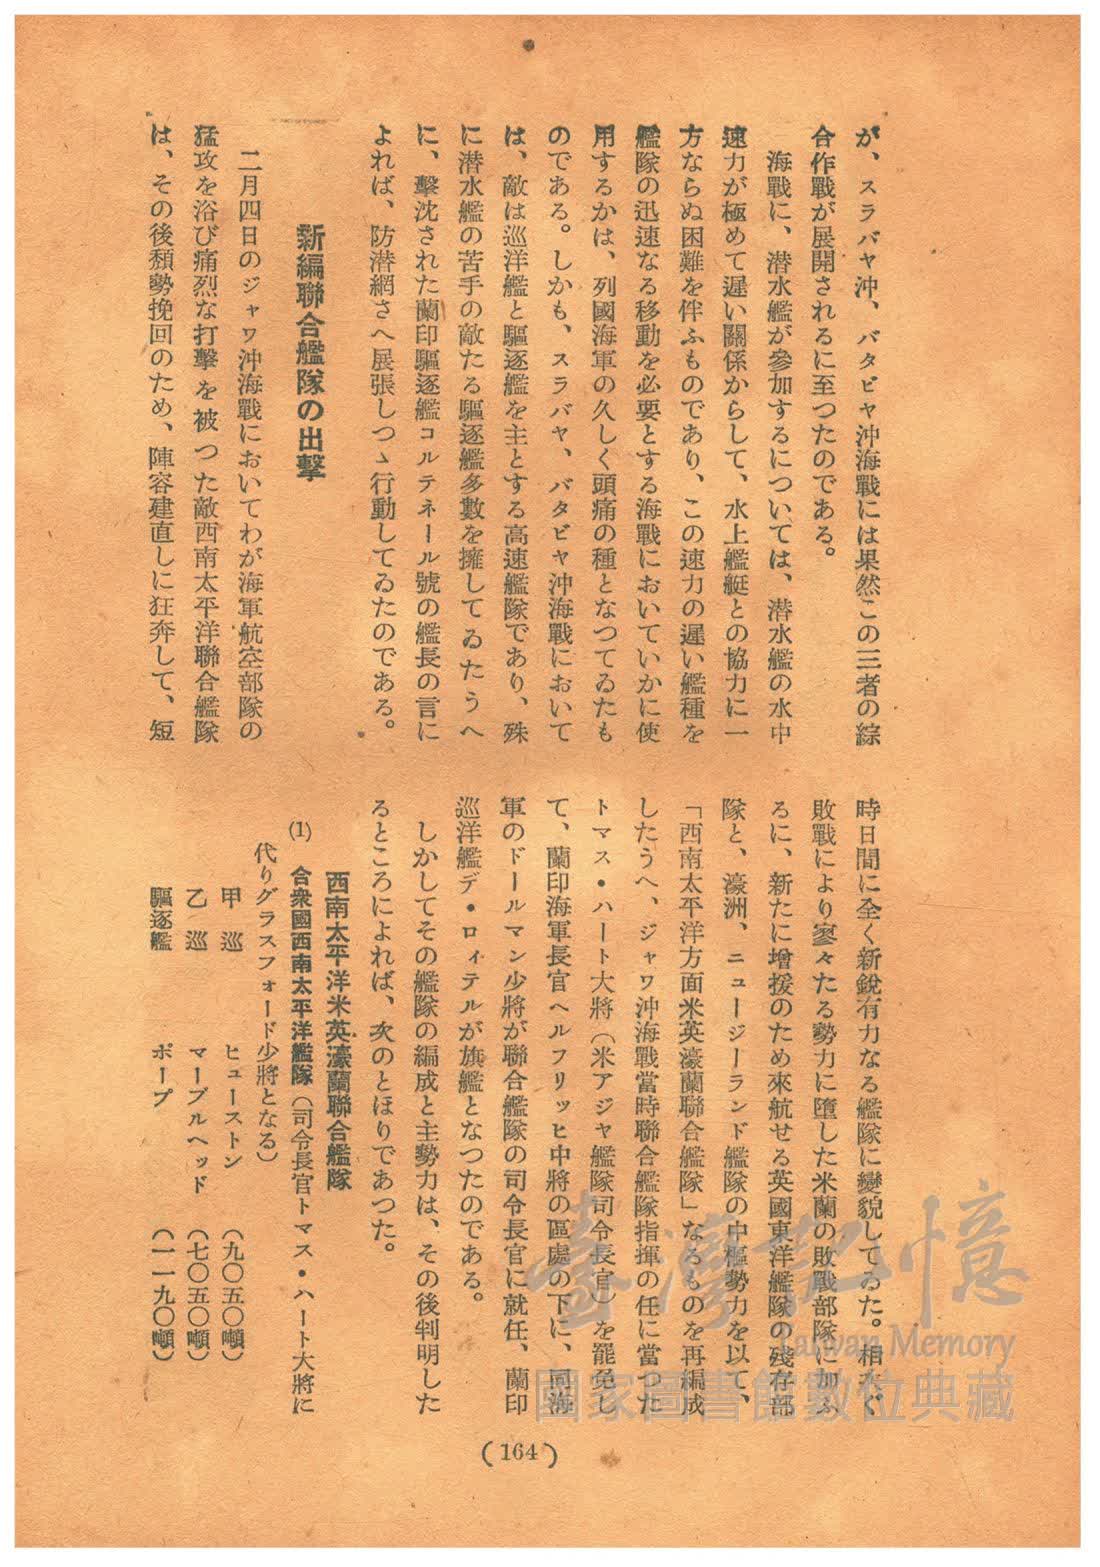 が、スラバヤ沖、バタビヤ沖海戰には果然この三者の綜
合作戰が展開されるに至つたのである。
海戰に、潜水艦が參加するについては、潜水艦の水中
速力が極めて遲い關係からして、水上艦艇との協力に一
方ならぬ困難を伴ふものであり、この速力の遲い艦種を
艦隊の迅速なる移動を必要とする海戰においていかに使
用するかは、列國海軍の久しく頭痛の種となつてゐたも
のである。しかも、スラバヤ、バタビヤ沖海戰において
は、敵は巡洋艦と驅逐艦を主とする高速艦隊であり、殊
に潜水艦の苦手の敵たる驅逐艦多數を擁してゐたうへ
に、擊沈された蘭印驅逐艦コルテネール號の艦長の言に
よれば、防潜網さへ展張しつゝ行動してゐたのである。
新編聯合艦隊の出擊
二月四日のジャワ沖海戰においてわが海軍航空部隊の
猛攻を浴び痛烈な打擊を被つた敵西南太平洋聯合艦隊
は、その後頽勢挽回のため、陣容建直しに狂奔して、短
時日間に全く新銳有力なる艦隊に變貌してゐた。相次ぐ
敗戰により寥々たる勢力に墮した米蘭の敗戰部隊に加ふ
るに、新たに增援のため來航せる英國東洋艦隊の殘存部
隊と、濠洲、ニュージーランド艦隊の中樞勢力を以て、
「西南太平洋方面米英濠蘭聯合艦隊」なるものを再編成
したうへ、ジャワ沖海戰當時聯合艦隊指揮の任に當つた
トマス・ハート大將（米アジヤ艦隊司令長官）を罷免し
て、蘭印海軍長官ヘルフリッヒ中將の區處の下に、同海
軍のドールマン少將が聯合艦隊の司令長官に就任、蘭印
巡洋艦デ・ロイテルが旗艦となつたのである。
しかしてその艦隊の編成と主勢力は、その後判明した
るところによれば、次のとほりであつた。
西南太平洋米英濠蘭聯合艦隊
(1) 合衆國西南太平洋艦隊（司令長官トマス・ハート大將に
代りグラスフォード少將となる）
甲巡 ヒューストン （九〇五〇噸）
乙巡 マーブルヘッド （七〇五〇噸）
驅逐艦 ポープ （一一九〇噸）
(164)
臺灣記憶
Taiwan Memory
國家圖書館數位典藏